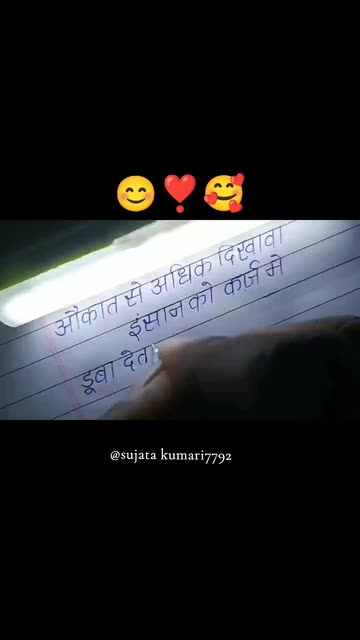 😊❣️🥰
औकात से अधिक दिखावा
इंसान को कर्ज़ मे
डूबा देता
@sujata kumari7792